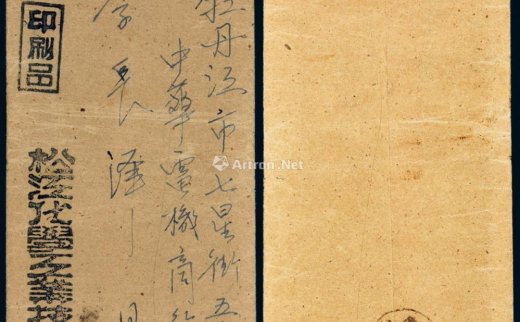 牡丹江市七星街五
中華電機商行
李長澤
印刷品
松江化學工業
Artron.Net